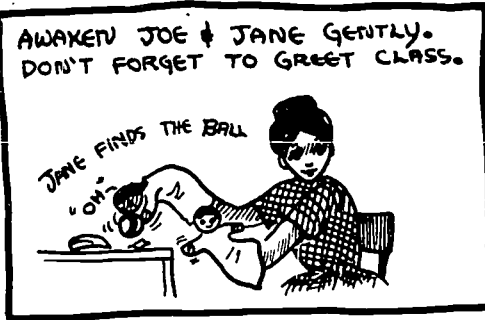 AWAKEN JOE & JANE GENTLY.
DON'T FORGET TO GREET CLASS.
JANE FINDS THE BALL
"OH"